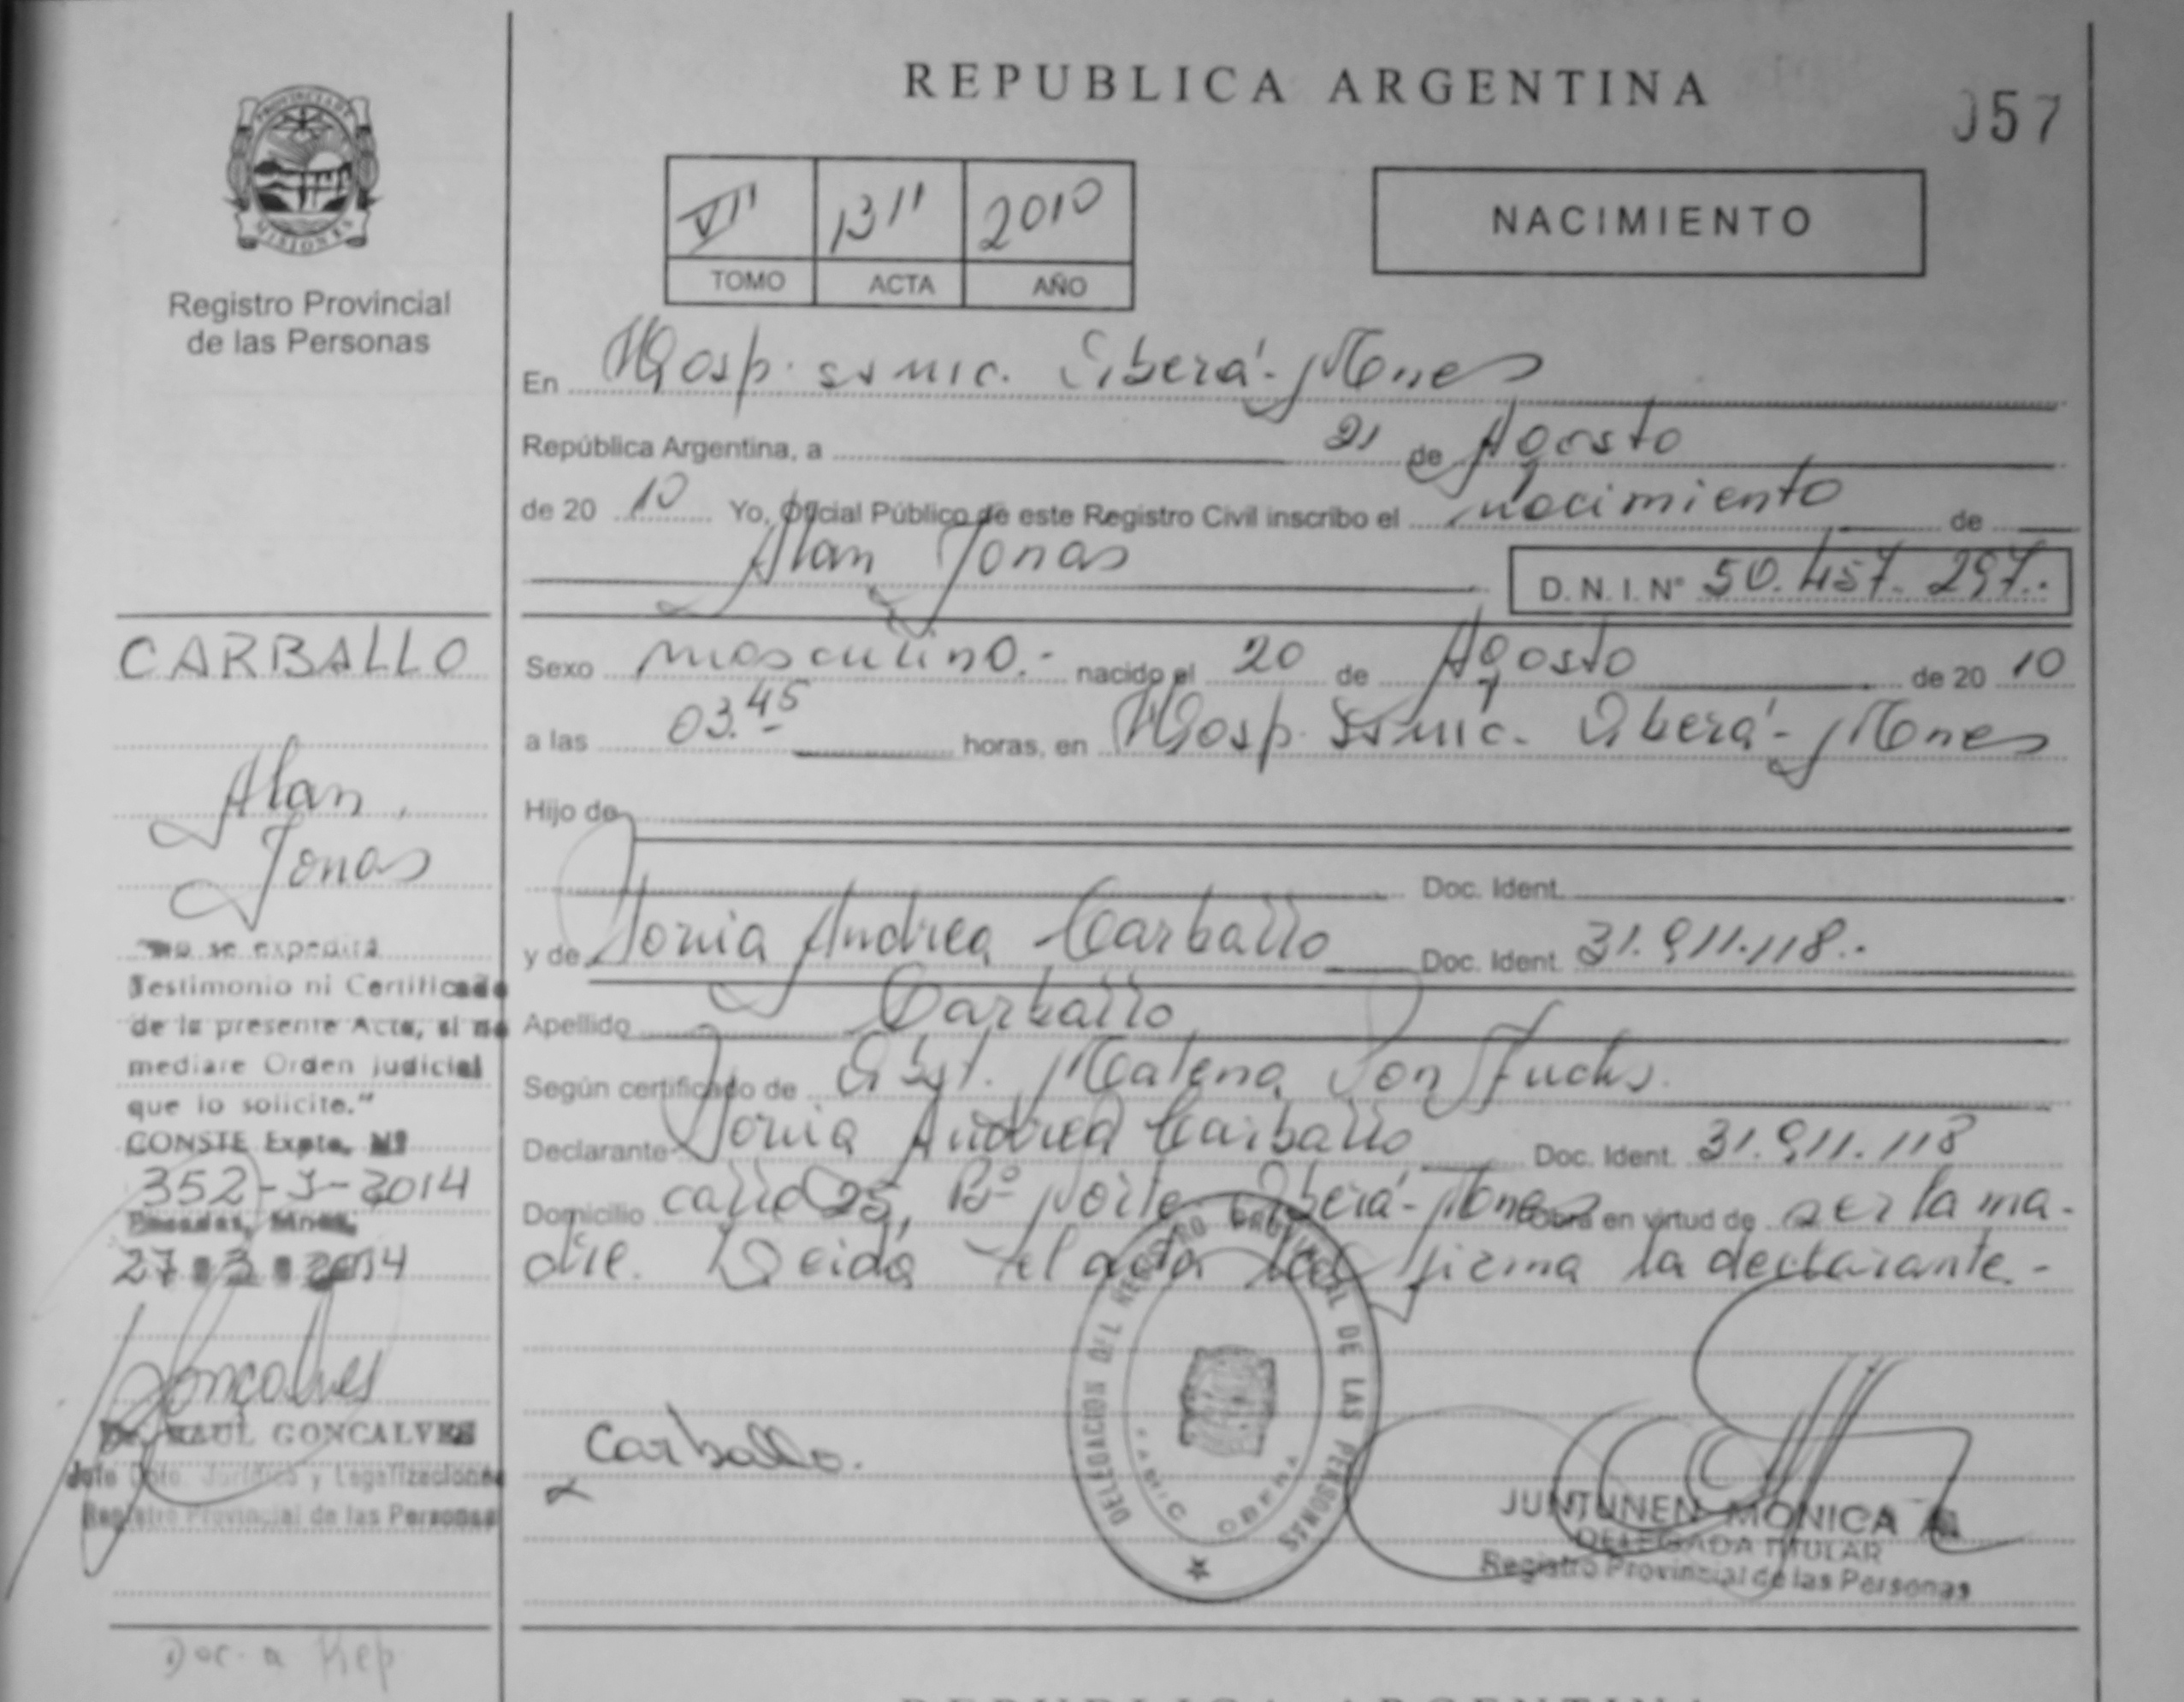 REPUBLICA ARGENTINA
057
PROVINCIA DE
MISIONES
Registro Provincial
de las Personas
VII 1311 2010
TOMO ACTA AÑO
NACIMIENTO
En Hosp. ssmic. Oberá - Mnes
República Argentina, a 21 de Agosto
de 20 10 Yo, Oficial Público de este Registro Civil inscribo el nacimiento de
Alan Jonas D. N. I. Nº 50.457.297.-
Sexo masculino.- nacido el 20 de Agosto de 20 10
a las 03.45 horas, en Hosp. ssmic. Oberá - Mnes
Hijo de
Doc. Ident.
y de Sonia Andrea Carballo Doc. Ident. 31.911.118.-
Apellido Carballo
Según certificado de Obst. Malena Von Fuchs.
Declarante Sonia Andrea Carballo Doc. Ident. 31.911.118
Domicilio calle 25, Bº Norte Oberá - Mnes Obra en virtud de ser la ma-
dre. Leida el acta firma la declarante.-
CARBALLO
Alan,
Jonas
"no se expedirá
Testimonio ni Certificado
de la presente Acta, si no
mediare Orden judicial
que lo solicite."
CONSTE Expte. Nº
352-J-2014
Posadas, Mnes,
27 3 2014
Goncalves
Dr. RAUL GONCALVES
Jefe Dpto. Jurídico y Legalizaciones
Registro Provincial de las Personas
Carballo.
DELEGACION DEL REGISTRO PROVINCIAL DE LAS PERSONAS
OBERA
JUNTUNEN MONICA
DELEGADA TITULAR
Registro Provincial de las Personas
Doc. a Rep
REPUBLICA ARGENTINA